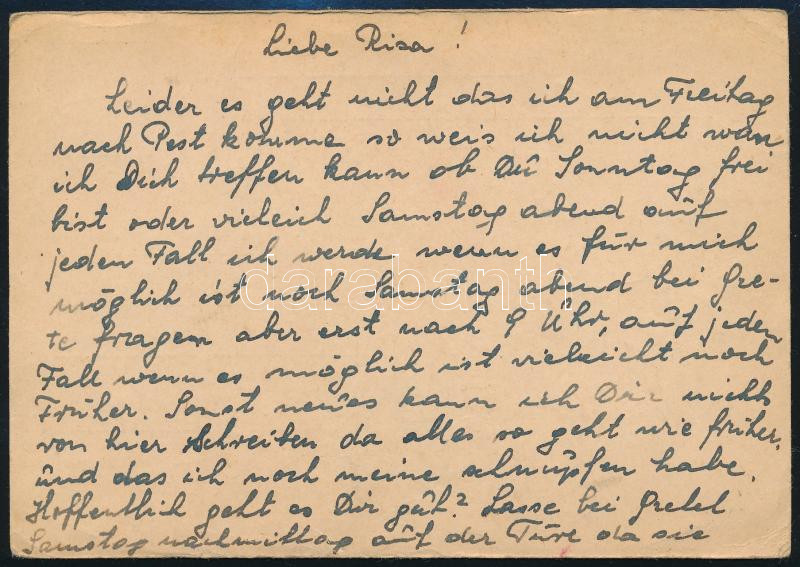 Liebe Risa!
Leider es geht nicht das ich am Freitag
nach Pest komme so weis ich nicht wan
ich Dich treffen kann ob Du Sonntag frei
bist oder vieleich Samstag abend auf
jeden Fall ich werde wenn es für mich
möglich ist noch Samstag abend bei Gre-
te fragen aber erst nach 9 Uhr, auf jeden
Fall wenn es möglich ist vieleicht noch
Früher. Sonst neues kann ich Dir nichts
von hier Schreiben da alles so geht wie früher.
und das ich noch meine schnupfen habe.
Hoffentlich geht es Dir gut? Lasse bei Gretel
Samstag nachmittag auf der Türe da sie
darabanth